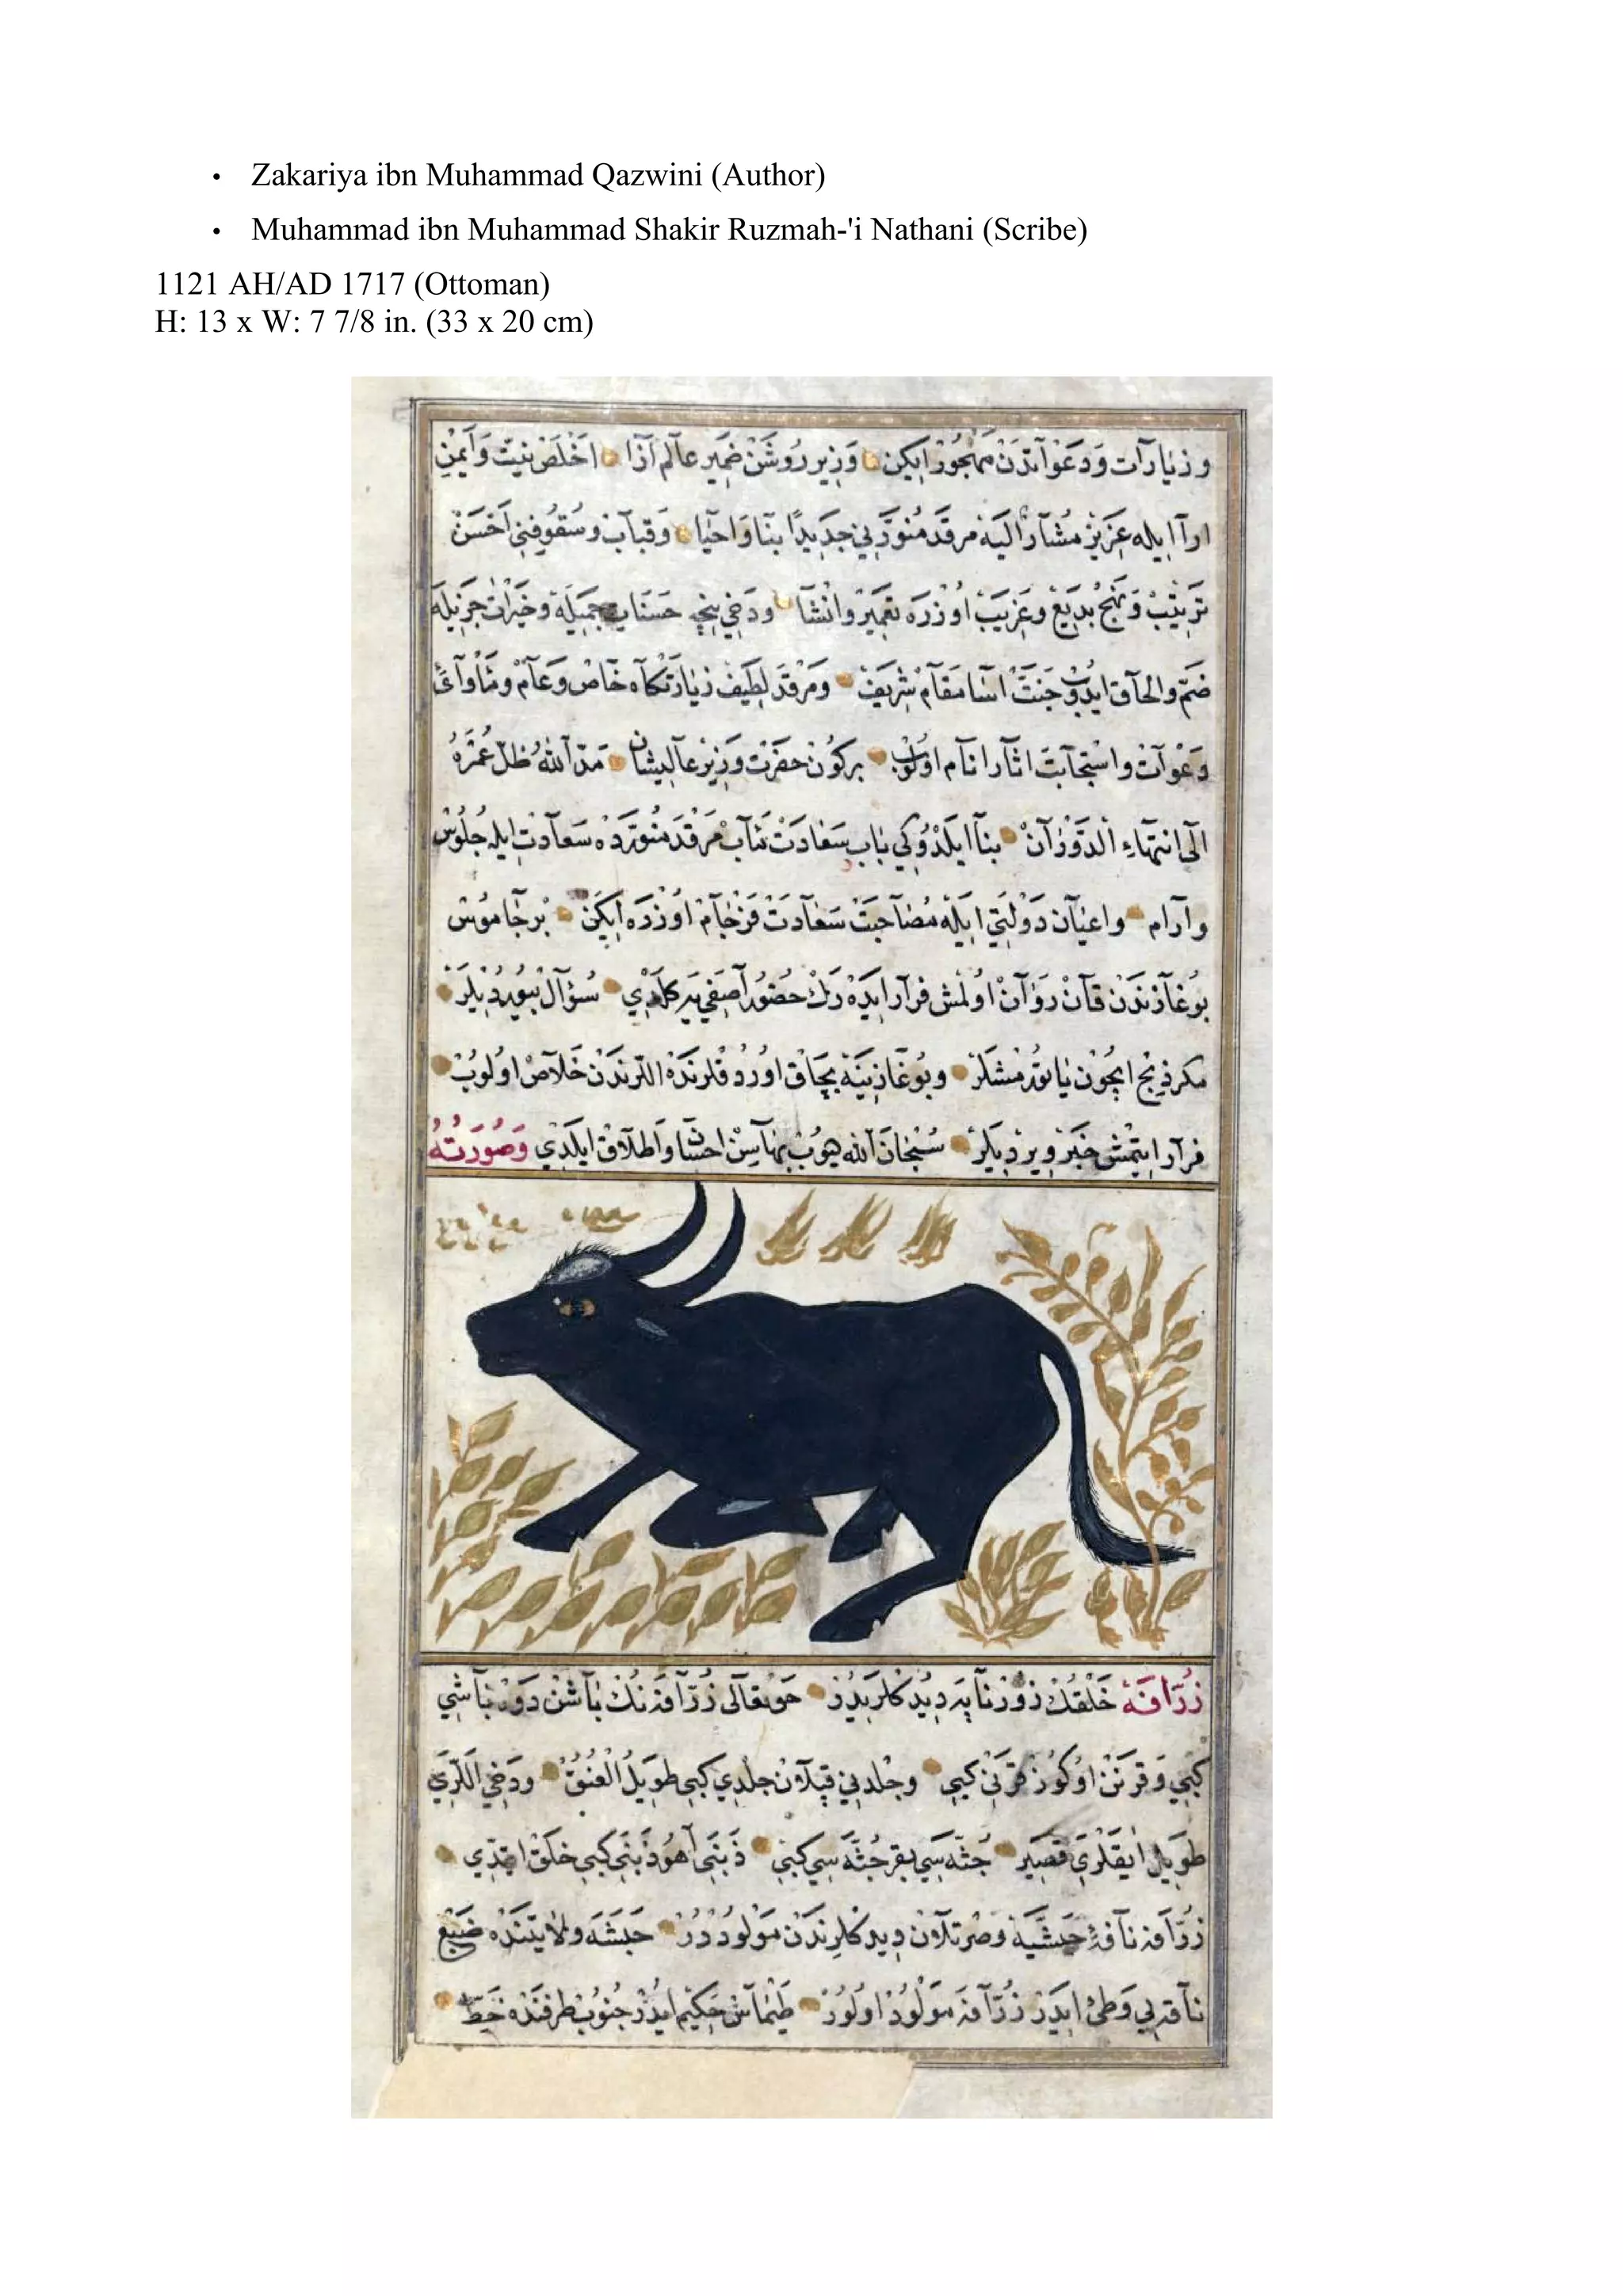 • Zakariya ibn Muhammad Qazwini (Author)
• Muhammad ibn Muhammad Shakir Ruzmah-'i Nathani (Scribe)
1121 AH/AD 1717 (Ottoman)
H: 13 x W: 7 7/8 in. (33 x 20 cm)
وزيارات ودعواتدن مهجور ايكن وزير روشن ضمير عالم آرا اخلص نيت وايمن
ارا ايله عزيز مشار اليه مرقد منورني جديدا بنا واحيا وقباب وسقوفني احسن
ترتيب ونهج بديع وغريب اوزره تعمير وانشا ودخي نيجه حسنات جميله وخيرات جزيله
ضم والحاق ايدوب جنت اسا مقام شريف ومرقد لطيف زيارتكاه خاص وعام
دعوات واستجابت اثار انام اولوب بركون حضرت وزير عاليشان مد الله ظل عمره
الى انتهاء الدوران بنا ايلدوكي باب سعادت مآب مرقد منورده سعادت ايله جلوس
وآرام واعيان دولتي ايله مصاحبت سعادت فرجام اوزره ايكن بر جاموس
بوغازندن قان روان اولمش فرار ايده رك حضور آصفي يه كلدي سؤال بيورديلر
مكر ذبح ايچون ياتورمشلر وبوغازينه بچاق اوردقلرنده اللرندن خلاص اولوب
فرار ايتمش خبر ويرديلر سبحان الله بهاسن احسان واطلاق ايلدي وصورته
زرافه خلقك زورنايه ديدكلريدر حق تعالى زرافه نك باشن دوه باشي
كبي وقرنن اوكوز قرني كبي وجلدني قپلان جلدي كبي طويل العنق ودخي اللري
طويل ايقلري قصير جثه سي بقر جثه سي كبي ذنبي آهو ذنبي كبي خلق ايتدي
زرافه ناقهٔ حبشيه وصرتلان ديدكلرندن مولود در حبشه ولايتنده ضبع
ناقه يي وطئ ايدر زرافه مولود اولور طيماس حكيم ايدر جنوب طرفنده خط